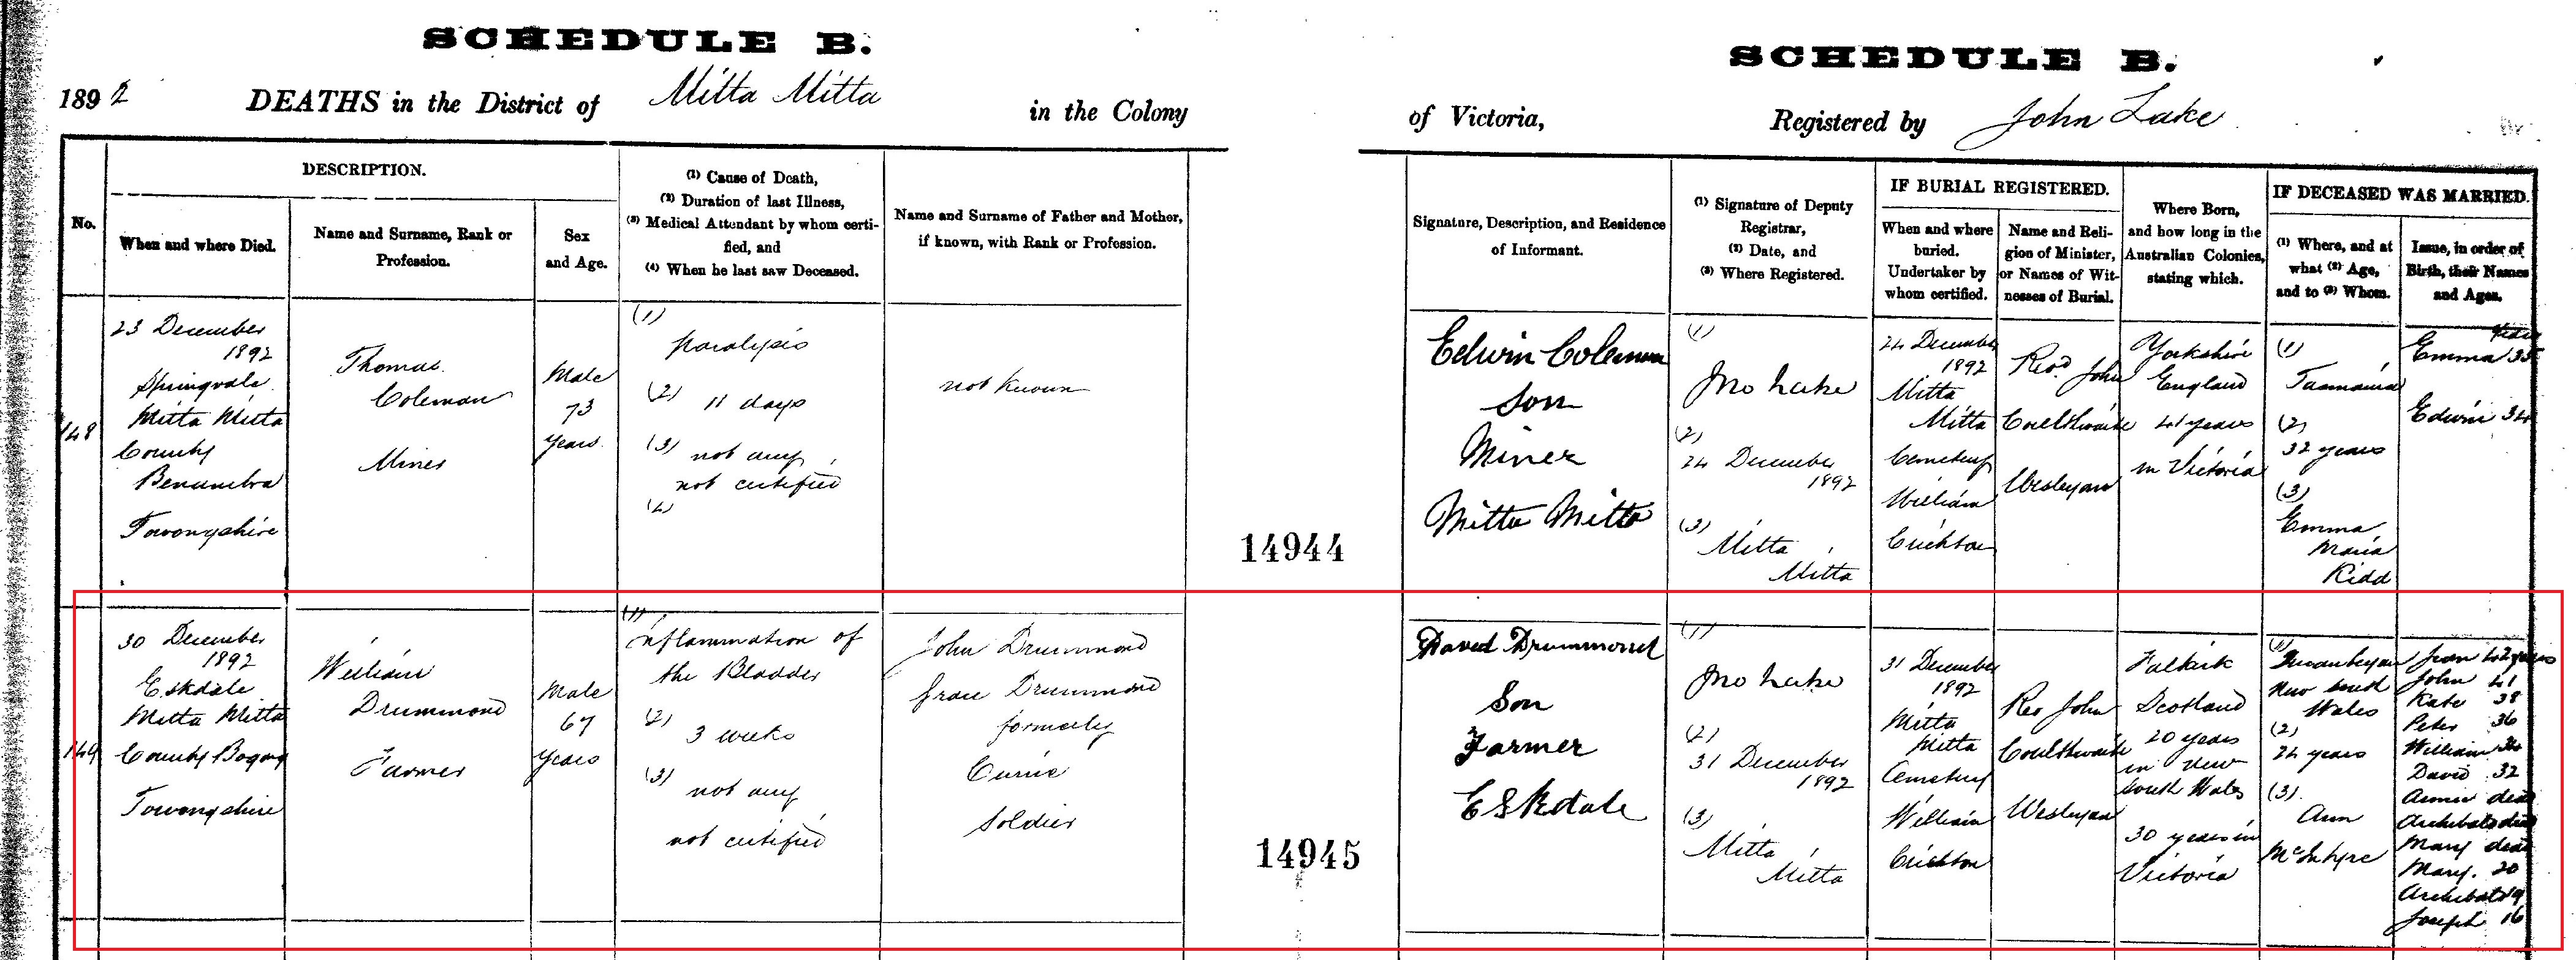 SCHEDULE B.
SCHEDULE B.
1892 DEATHS in the District of Mitta Mitta in the Colony
of Victoria, Registered by John Lake
No.
DESCRIPTION.
When and where Died.
Name and Surname, Rank or
Profession.
Sex
and Age.
(1) Cause of Death,
(2) Duration of last Illness,
(3) Medical Attendant by whom certi-
fied, and
(4) When he last saw Deceased.
Name and Surname of Father and Mother,
if known, with Rank or Profession.
Signature, Description, and Residence
of Informant.
(1) Signature of Deputy
Registrar,
(2) Date, and
(3) Where Registered.
IF BURIAL REGISTERED.
When and where
buried.
Undertaker by
whom certified.
Name and Reli-
gion of Minister,
or Names of Wit-
nesses of Burial.
Where Born,
and how long in the
Australian Colonies,
stating which.
IF DECEASED WAS MARRIED.
(1) Where, and at
what (2) Age,
and to (3) Whom.
Issue, in order of
Birth, their Names
and Ages.
148
23 December
1892
Springvale
Mitta Mitta
County
Benambra
Towongshire
Thomas
Coleman
Miner
Male
73
Years
(1)
paralysis
(2) 11 days
(3) not any
not certified
(4)
not known
14944
Edwin Coleman
Son
Miner
Mitta Mitta
(1)
Jno Lake
(2)
24 December
1892
(3)
Mitta
Mitta
24 December
1892
Mitta
Mitta
Cemetery
William
Crichton
Revd John
Coulthwaite
Wesleyan
Yorkshire
England
41 years
in Victoria
(1)
Tasmania
(2)
32 years
(3)
Emma
Maria
Kidd
Emma 35
Edwin 34
149
30 December
1892
Eskdale
Mitta Mitta
County Bogong
Towongshire
William
Drummond
Farmer
Male
67
Years
(1)
inflammation of
the Bladder
(2)
3 weeks
(3)
not any
not certified
John Drummond
Grace Drummond
formerly
Currie
Soldier
14945
David Drummond
Son
Farmer
Eskdale
(1)
Jno Lake
(2)
31 December
1892
(3)
Mitta
Mitta
31 December
1892
Mitta
Mitta
Cemetery
William
Crichton
Rev John
Coulthwaite
Wesleyan
Falkirk
Scotland
20 years
in New
South Wales
30 years in
Victoria
(1)
Queanbeyan
New South
Wales
(2)
24 years
(3)
Ann
McIntyre
Jean 42 years
John 41
Kate 38
Peter 36
William 34
David 32
Annie dead
Archibald dead
Mary dead
Mary. 20
Archibald 19
Joseph 16